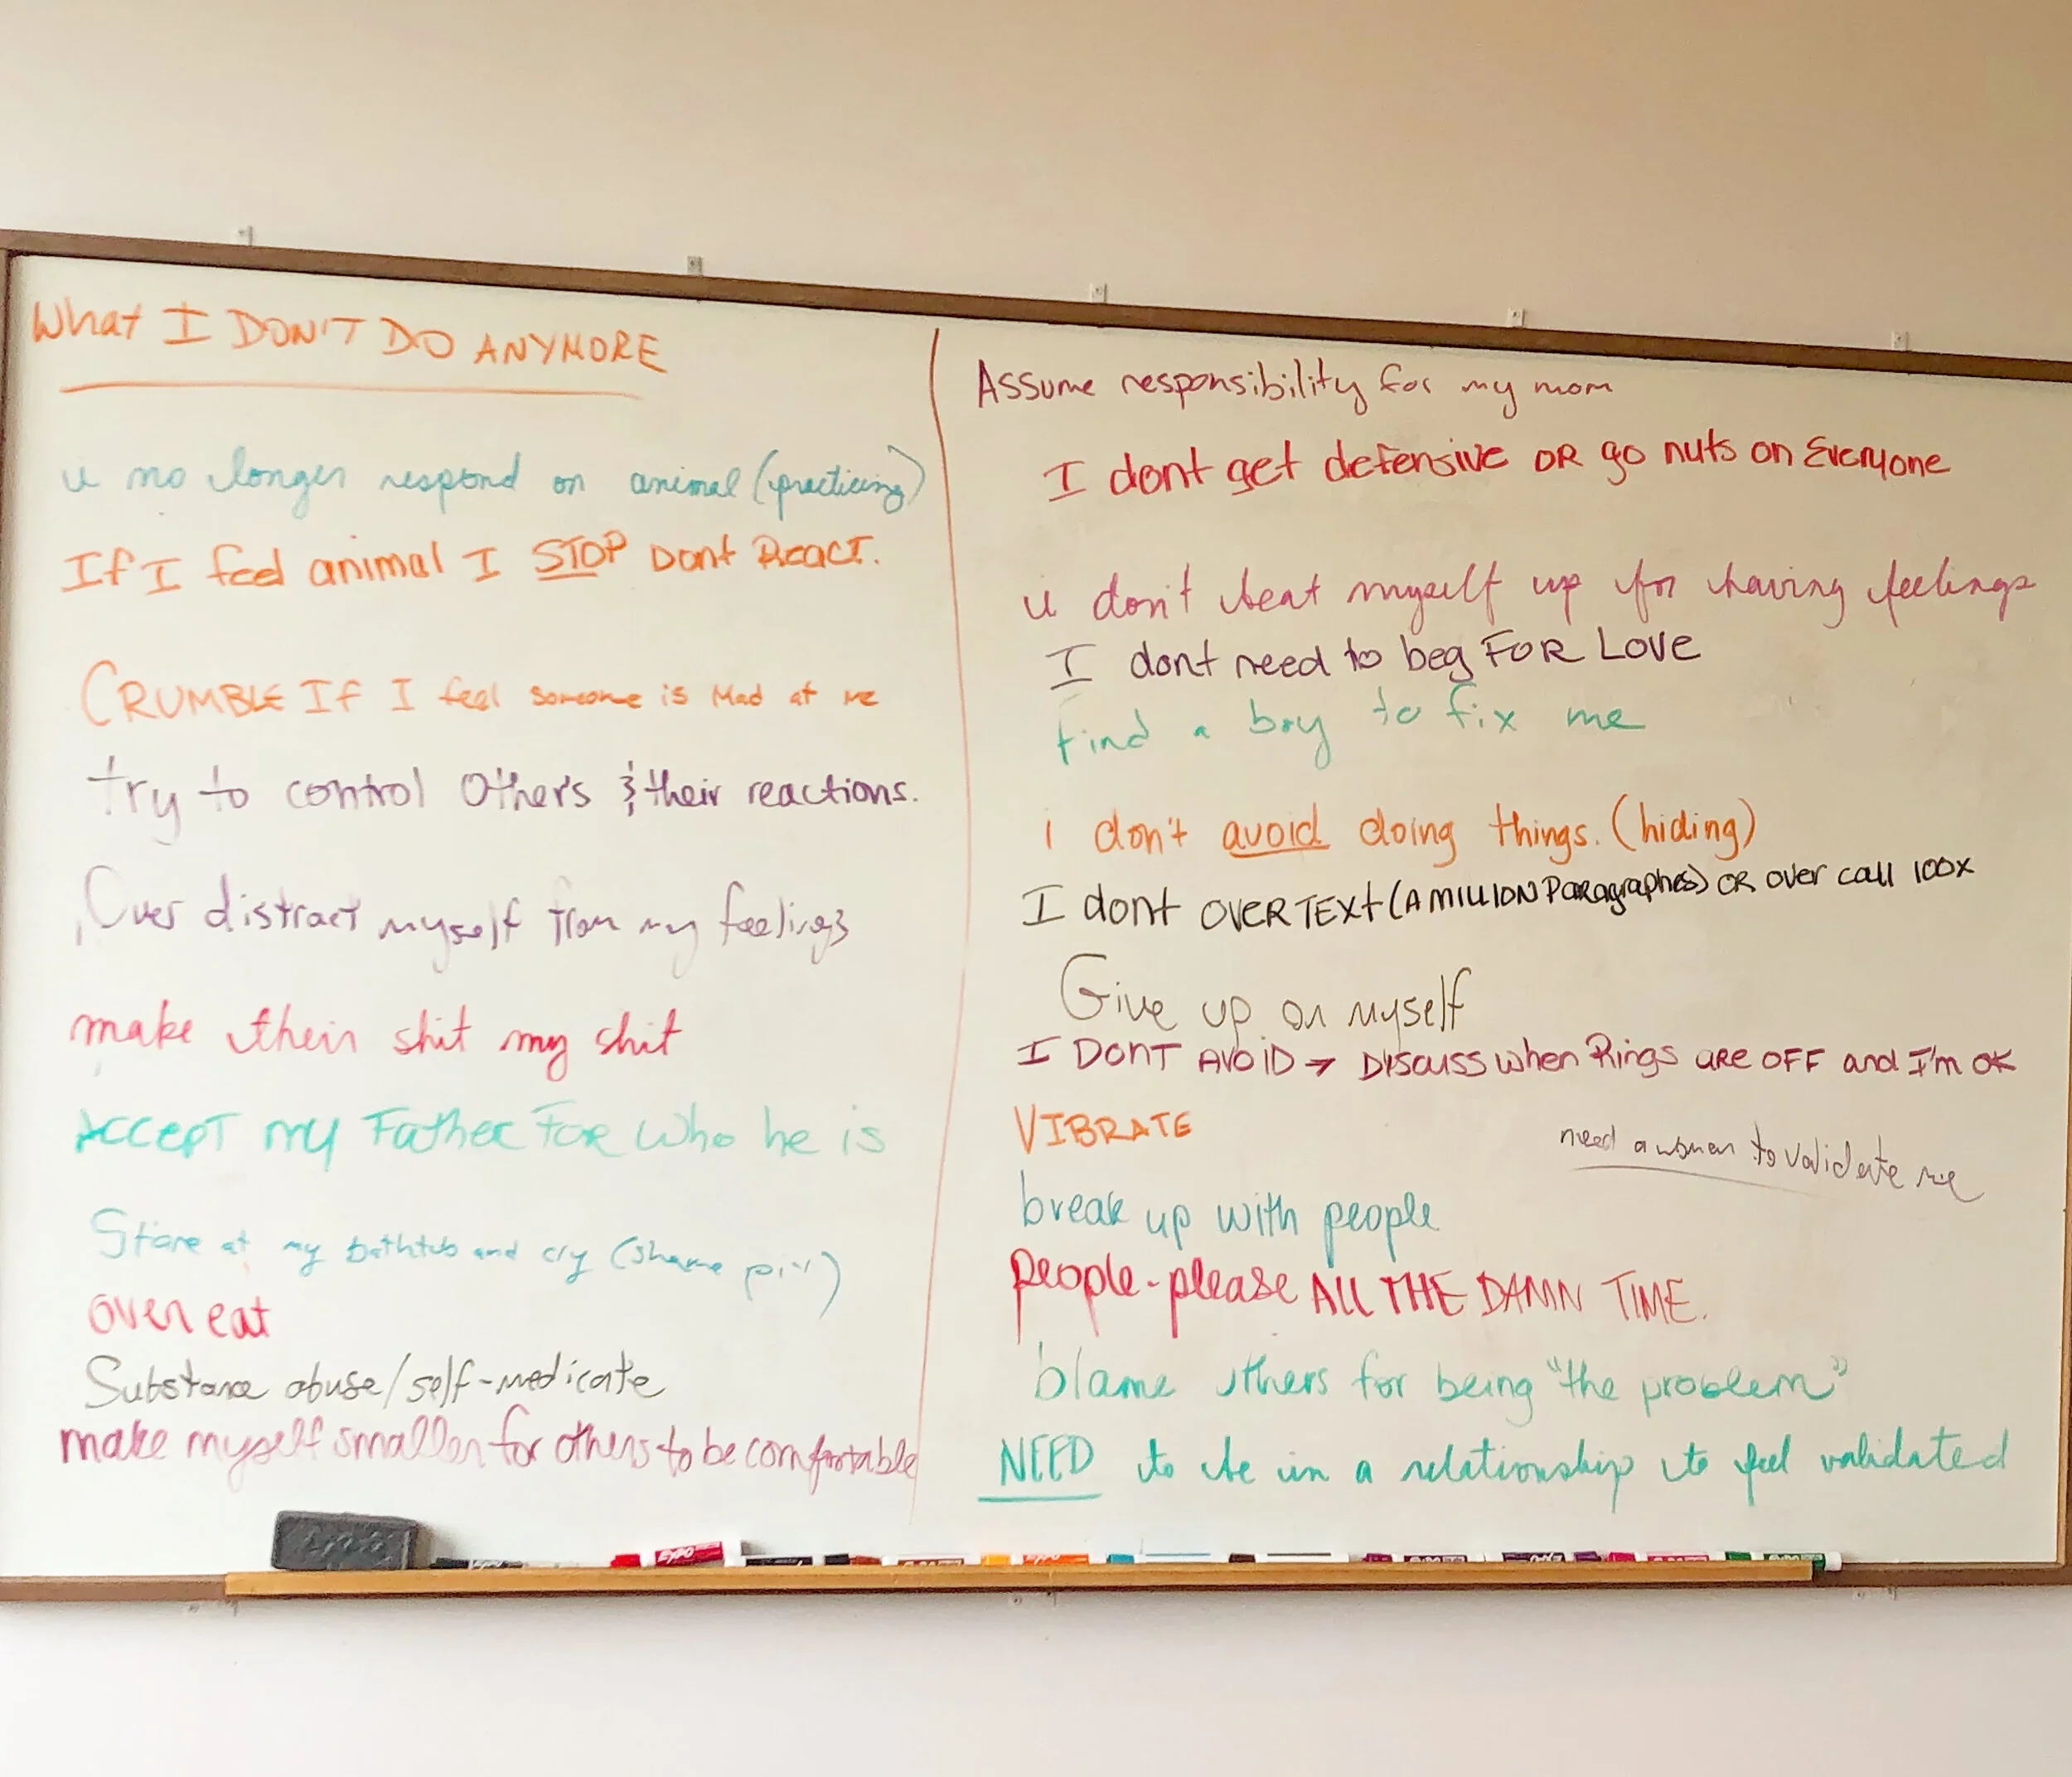 What I DON'T DO ANYMORE
I no longer respond on animal (practicing)
If I feel animal I STOP Dont React.
CRUMBLE If I feel someone is Mad at me
try to control others & their reactions.
Over distract myself from my feelings
make their shit my shit
ACCEPT my Father For who he is
Stare at my bathtub and cry (shame pit)
over eat
Substance abuse/self-medicate
make myself smaller for others to be comfortable
Assume responsibility for my mom
I dont get defensive OR go nuts on Everyone
I don't beat myself up for having feelings
I dont need to beg FOR LOVE
find a boy to fix me
i don't avoid doing things. (hiding)
I dont OVER TEXT (A MILLION PARagraphes) OR over call 100x
Give up on myself
I DONT AVOID → DISCUSS when Rings are OFF and I'm OK
VIBRATE
need a women to validate me
break up with people
people-please ALL THE DAMN TIME.
blame others for being "the problem"
NEED to be in a relationship to feel validated
EXPO